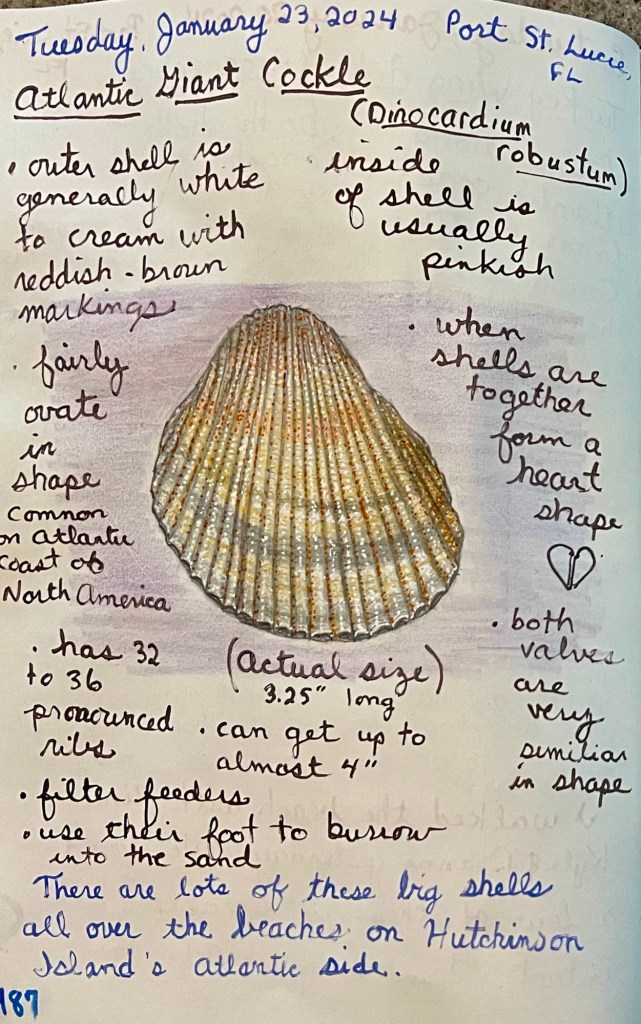 Tuesday, January 23, 2024 Port St. Lucie,
FL
Atlantic Giant Cockle
(Dinocardium
robustum)
• outer shell is
generally white
to cream with
reddish-brown
markings
• inside
of shell is
usually
pinkish
• fairly
ovate
in
shape
common
on atlantic
coast of
North America
• when
shells are
together
form a
heart
shape
• has 32
to 36
pronounced
ribs
(actual size)
3.25" long
• can get up to
almost 4"
• both
valves
are
very
similiar
in shape
• filter feeders
• use their foot to burrow
into the sand
There are lots of these big shells
all over the beaches on Hutchinson
Island's atlantic side.
187